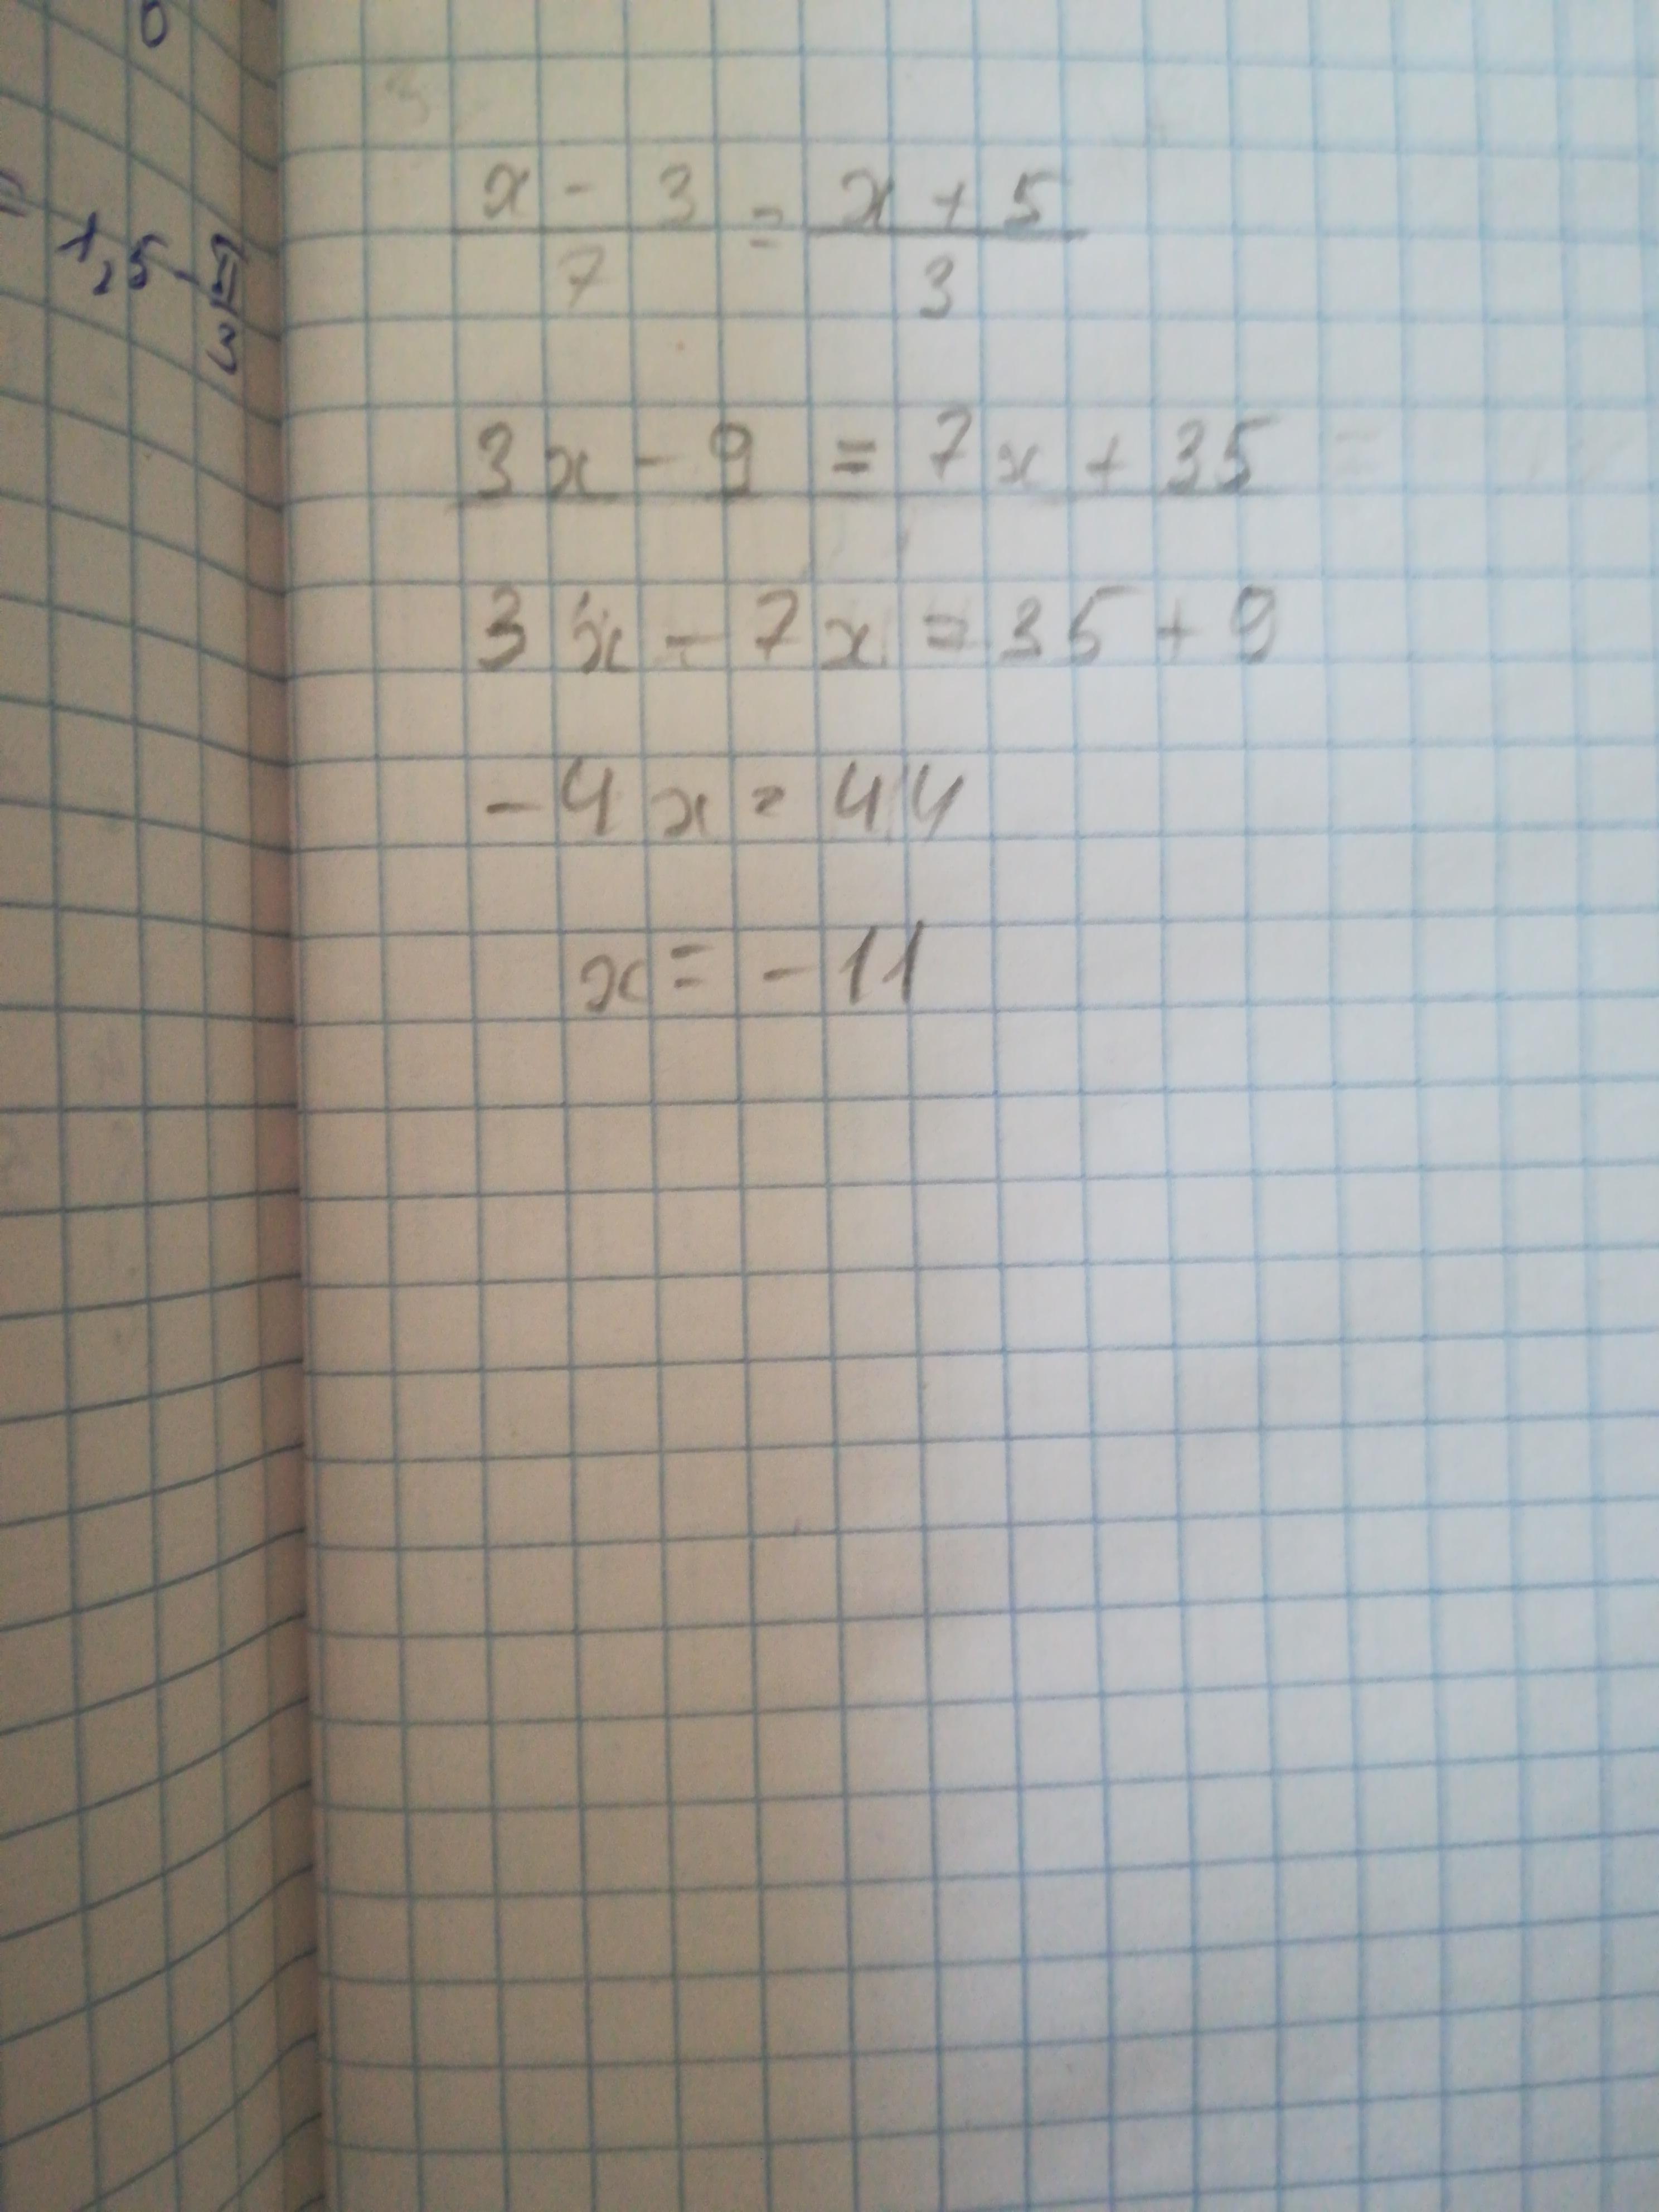 0
= 1,5 - π/3
x - 3 / 7 = x + 5 / 3
3x - 9 = 7x + 35 =
3x - 7x = 35 + 9
-4x = 44
x = -11